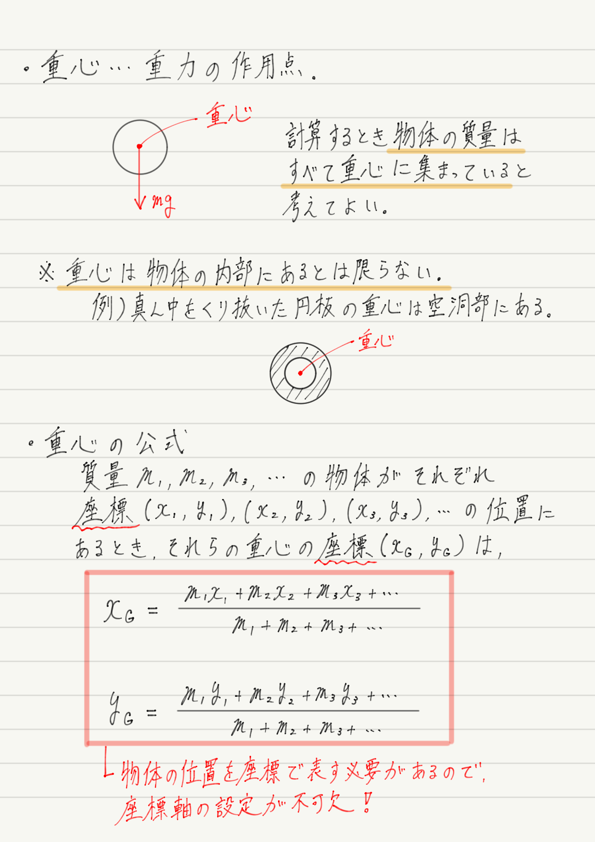 ・重心…重力の作用点.
重心
mg
計算するとき物体の質量は
すべて重心に集まっていると
考えてよい.
※重心は物体の内部にあるとは限らない.
例)真ん中をくり抜いた円板の重心は空洞部にある。
重心
・重心の公式
質量 m₁, m₂, m₃, … の物体がそれぞれ
座標 (x₁, y₁), (x₂, y₂), (x₃, y₃), … の位置に
あるとき, それらの重心の座標 (x_G, y_G) は,
x_G = (m₁x₁ + m₂x₂ + m₃x₃ + …) / (m₁ + m₂ + m₃ + …)
y_G = (m₁y₁ + m₂y₂ + m₃y₃ + …) / (m₁ + m₂ + m₃ + …)
物体の位置を座標で表す必要があるので,
座標軸の設定が不可欠!